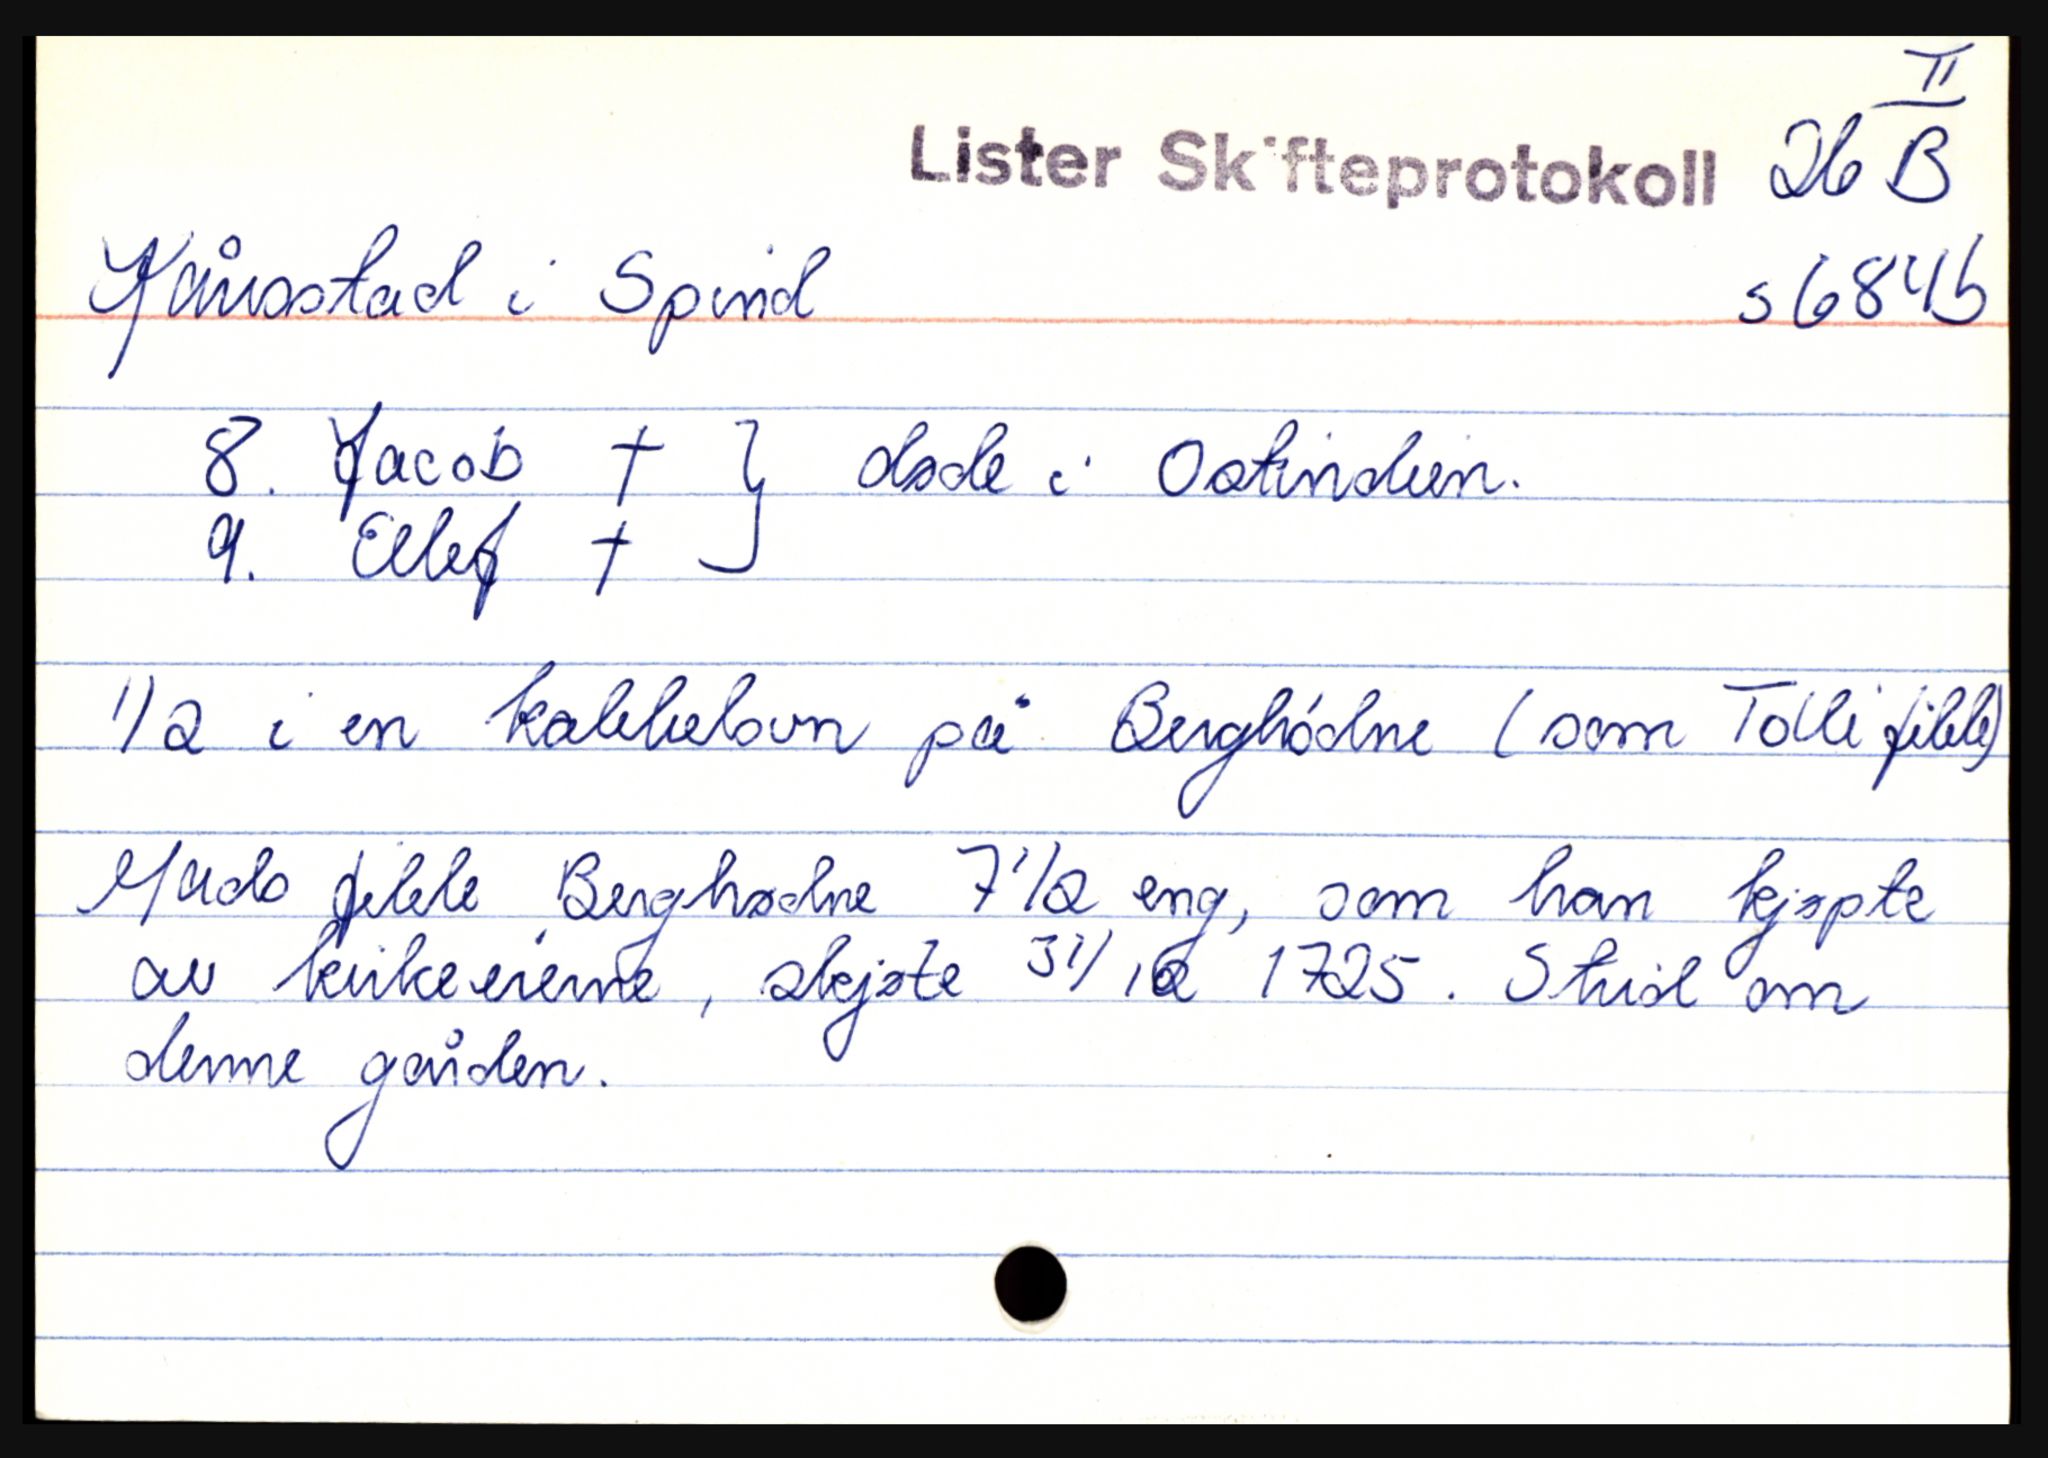 II
Lister Skifteprotokoll 26 B
Kåusstad i Spind s 684b
8. Jacob † } døde i Ostindien.
9. Ellef †
1/2 i en kalkelovn på Berghódne (som Tolli fikk)
Mads fikk Berghødne 7 1/2 eng, som han kjøpte
av kirkeeierne, skjøte 31/12 1725. Strid om
denne gården.